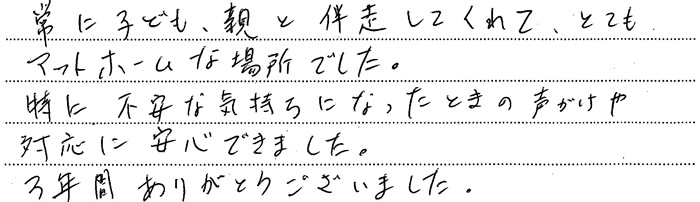 常に子ども、親と伴走してくれて、とても
アットホームな場所でした。
特に不安な気持ちになったときの声がけや
対応に安心できました。
3年間ありがとうございました。